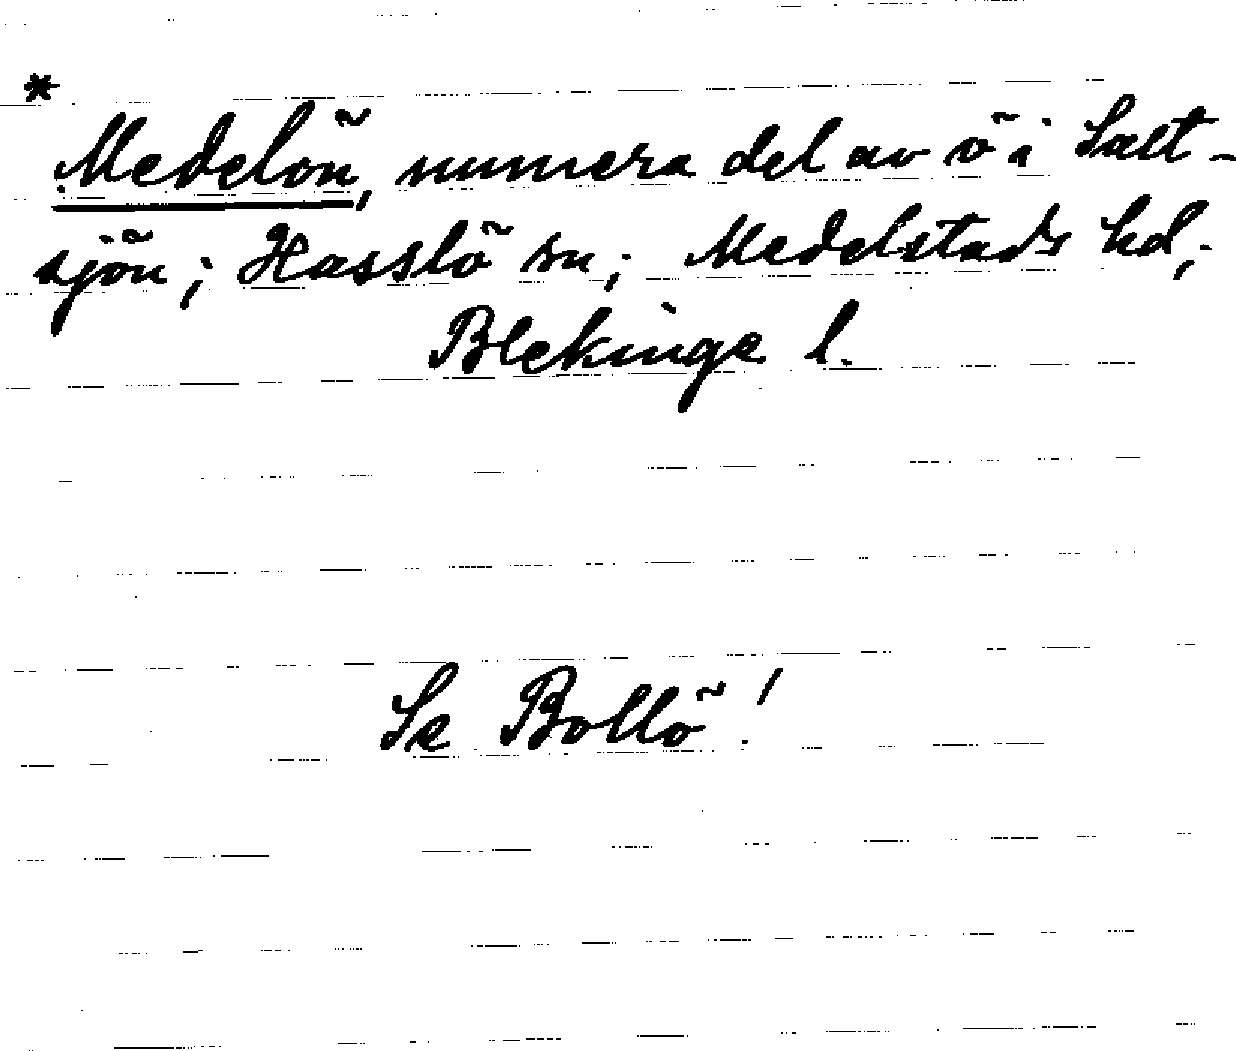 *
Medelön, numera del av ö i Salt-
sjön; Hasslö sn; Medelstads hd;
Blekinge l.
Se Bollö!